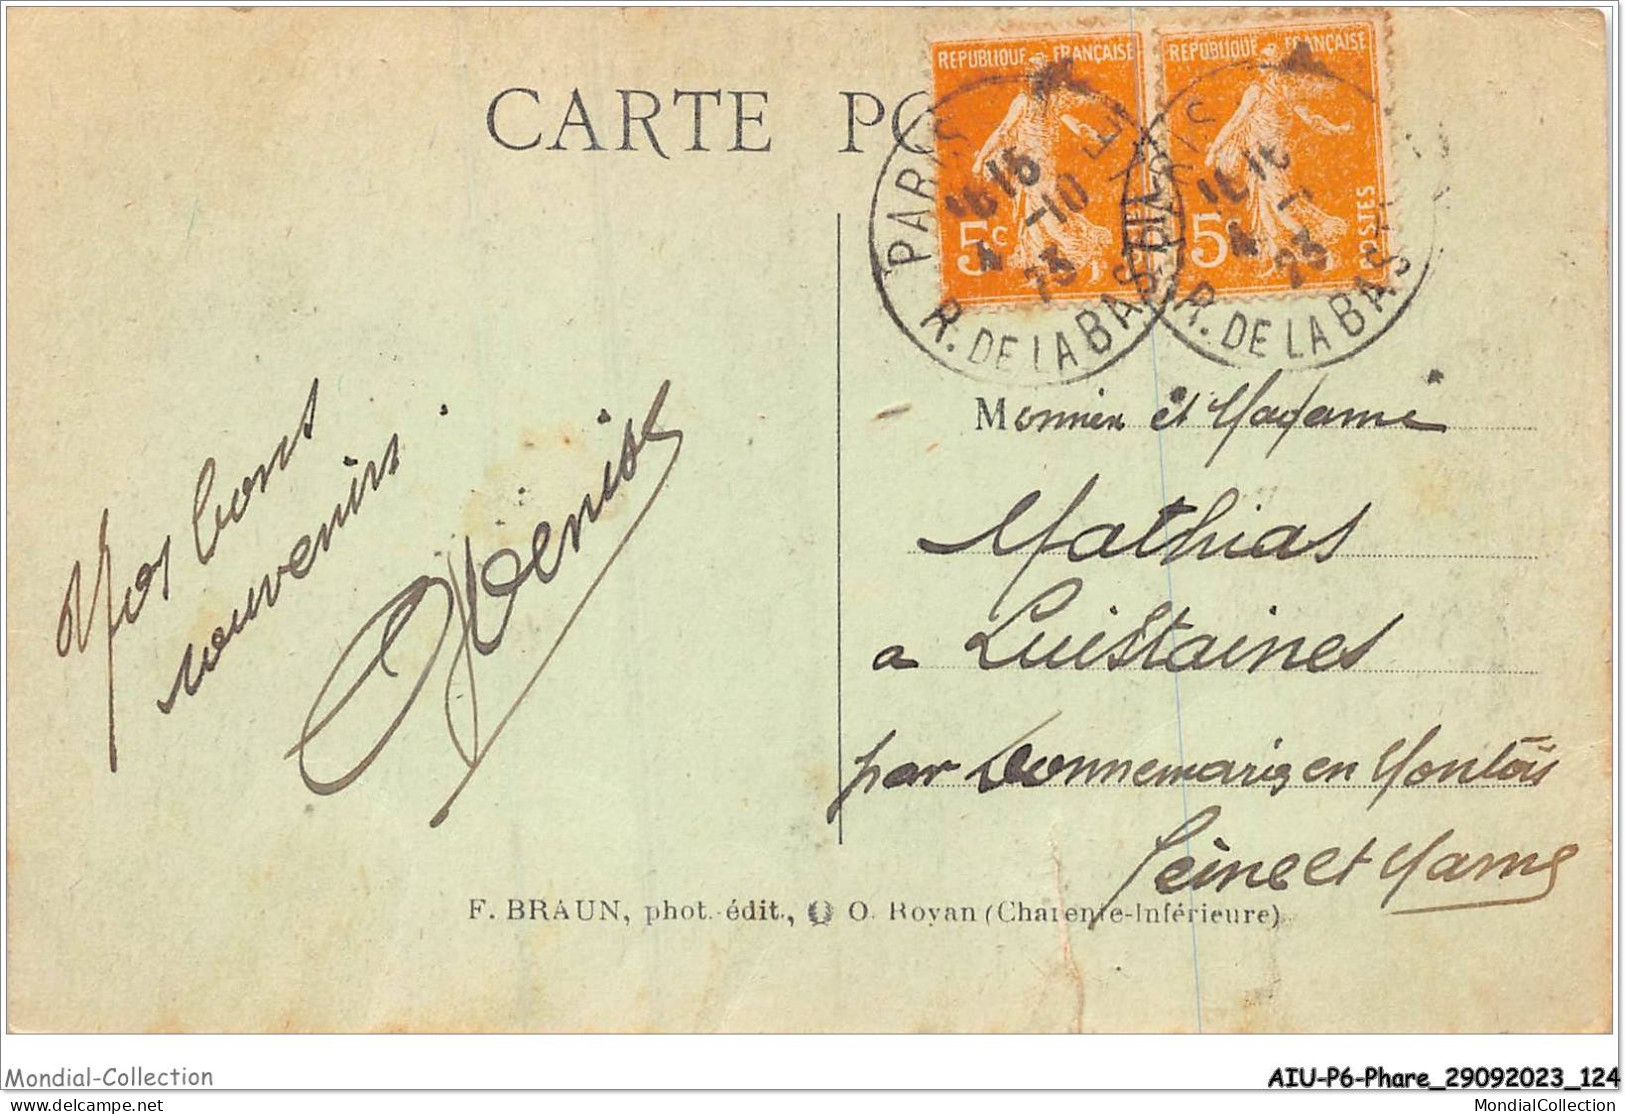 CARTE PO
REPUBLIQUE FRANÇAISE
5c
REPUBLIQUE FRANÇAISE
5c
POSTES
PARIS
16 15
4 -10
23
R. DE LA BASTILLE
R. DE LA BAS
Mos bons
souvenirs.
Denise
Monsieur et Madame
Mathias
a Luistaines
par Donnemarie en Montois
Seine et Marne
F. BRAUN, phot. édit., O. Royan (Charente-Inférieure)
Mondial-Collection
AIU-P6-Phare_29092023_124
delcampe.net
MondialCollection